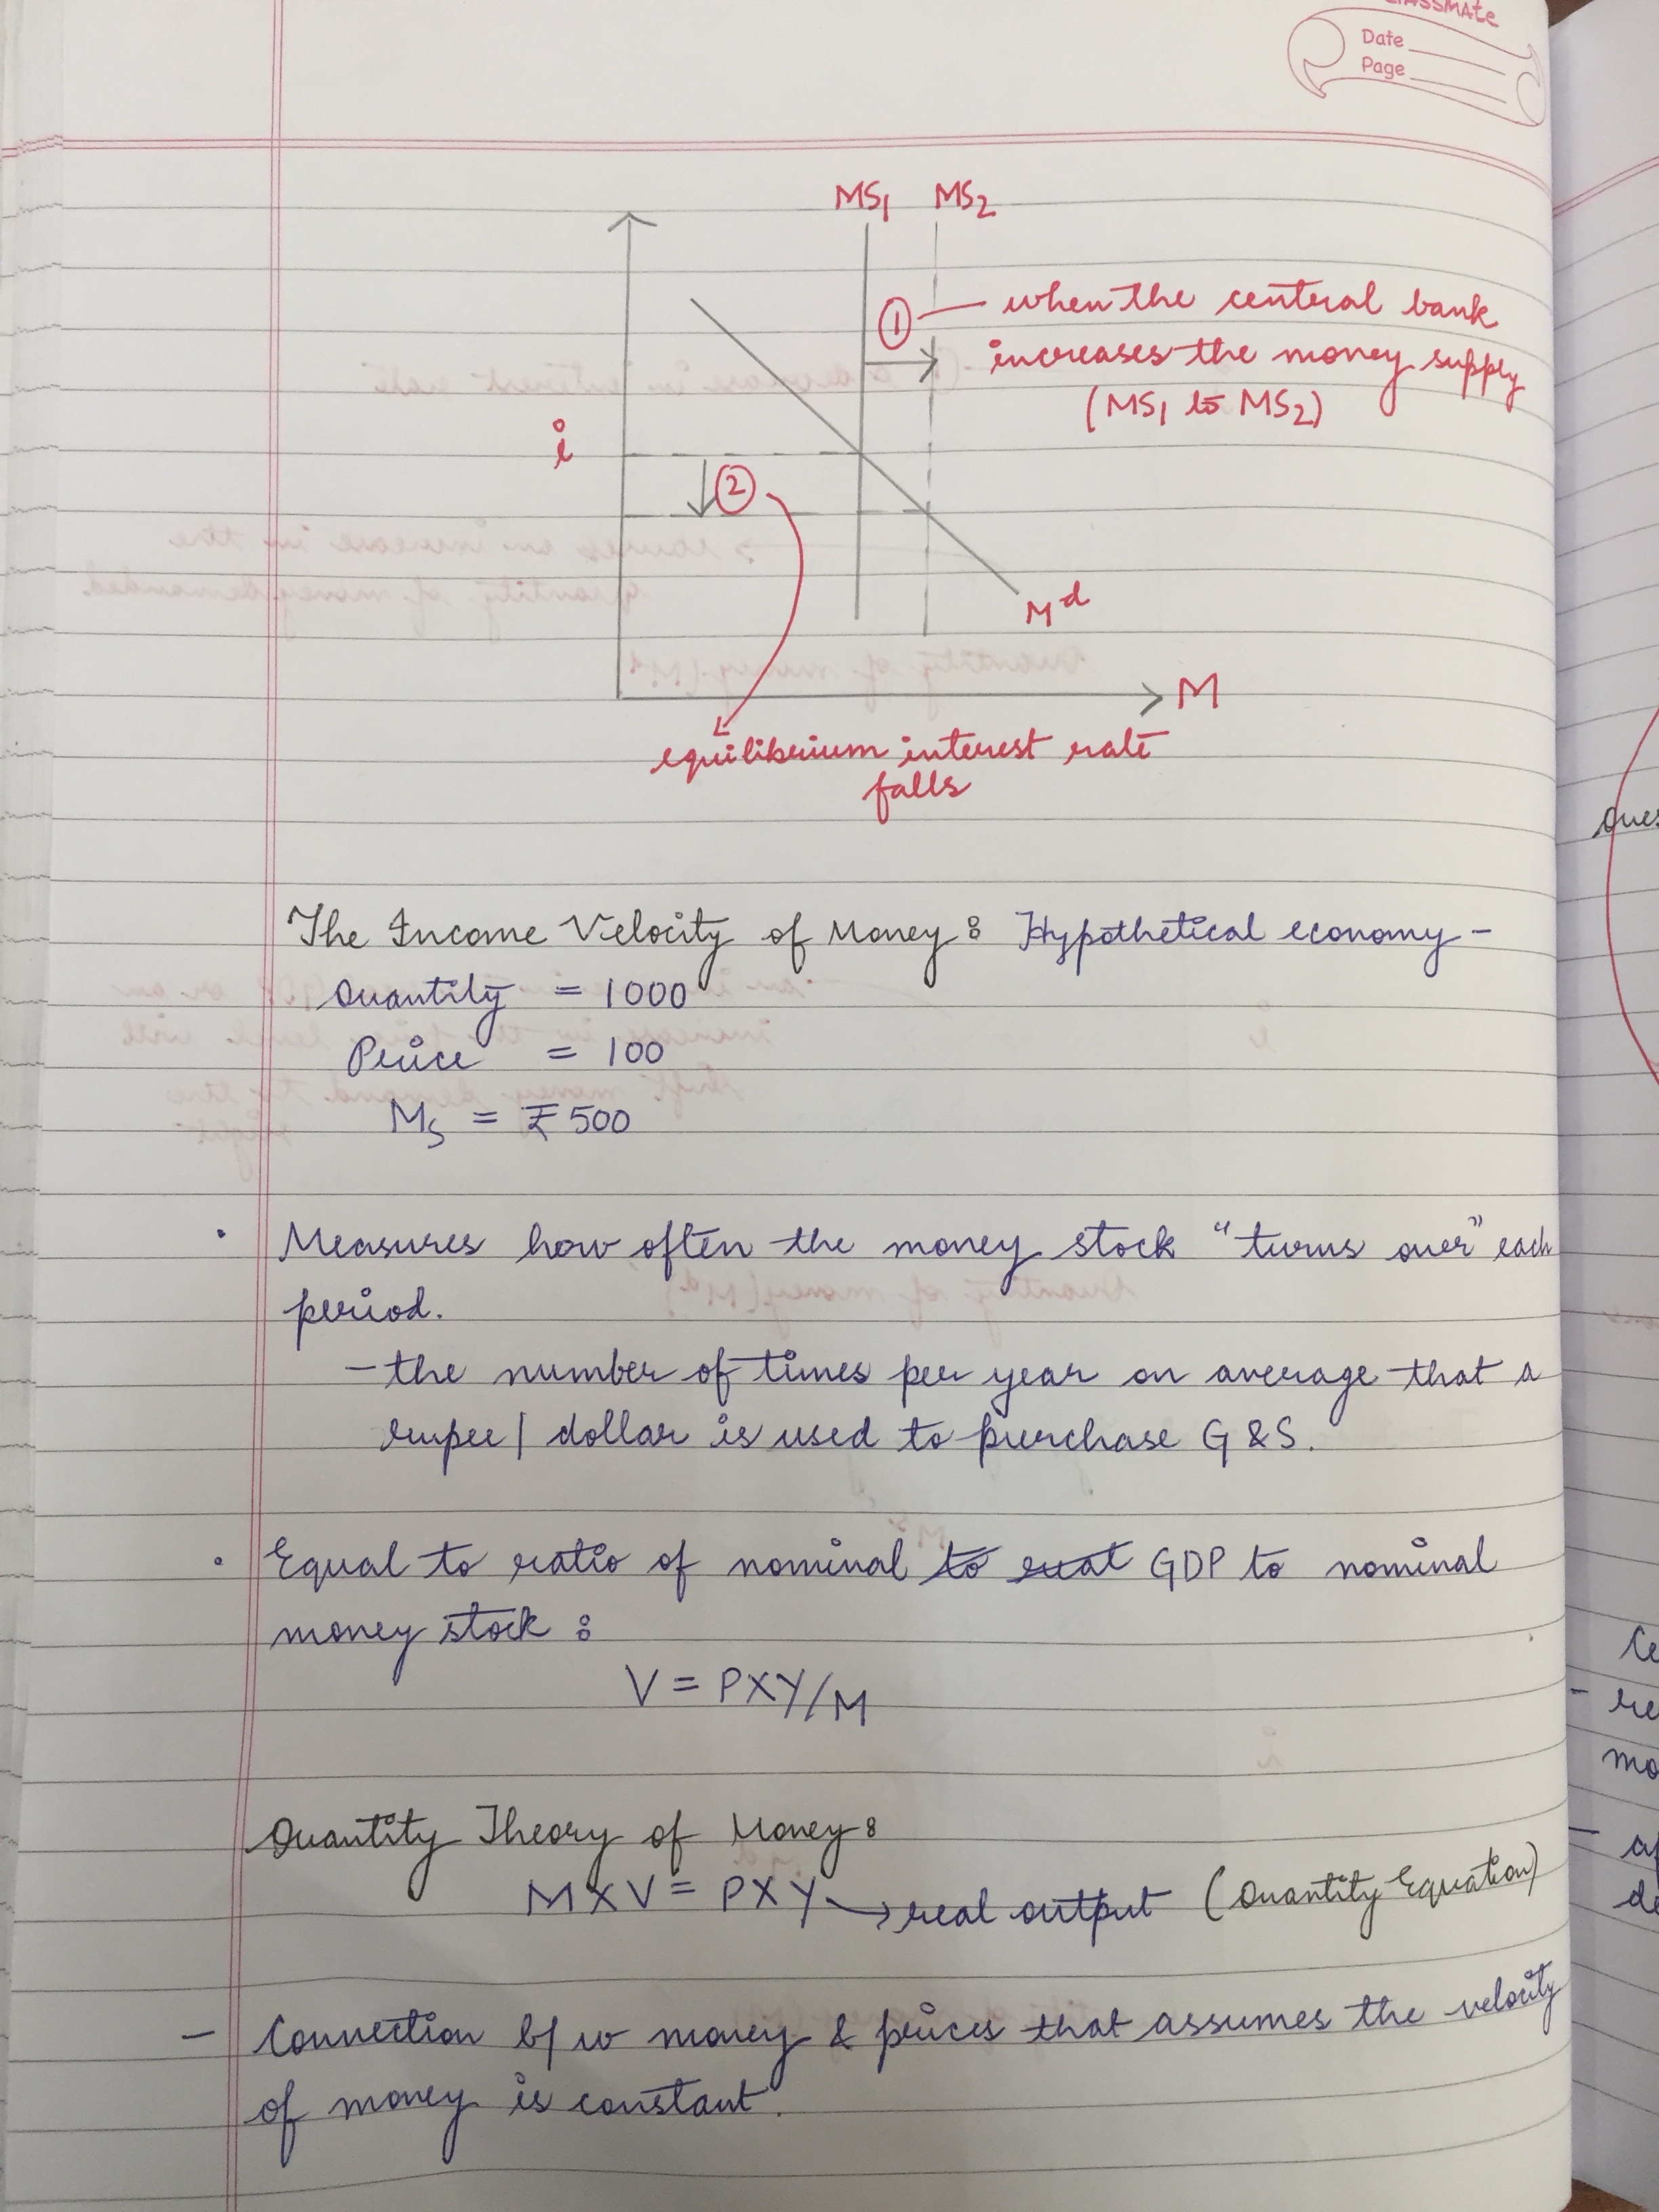 classmate
Date
Page
MS1 MS2
① — when the central bank
increases the money supply
(MS1 to MS2)
i
②
Md
M
equilibrium interest rate
falls
The Income Velocity of Money: Hypothetical economy -
Quantity = 1000
Price = 100
MS = ₹500
• Measures how often the money stock "turns over" each
period.
- the number of times per year on average that a
rupee/dollar is used to purchase G & S.
• Equal to ratio of nominal to real GDP to nominal
money stock:
V = PXY/M
Quantity Theory of Money:
MXV = PXY → real output (Quantity Equation)
- Connection b/w money & prices that assumes the velocity
of money is constant.
Ques
- re
mo
de